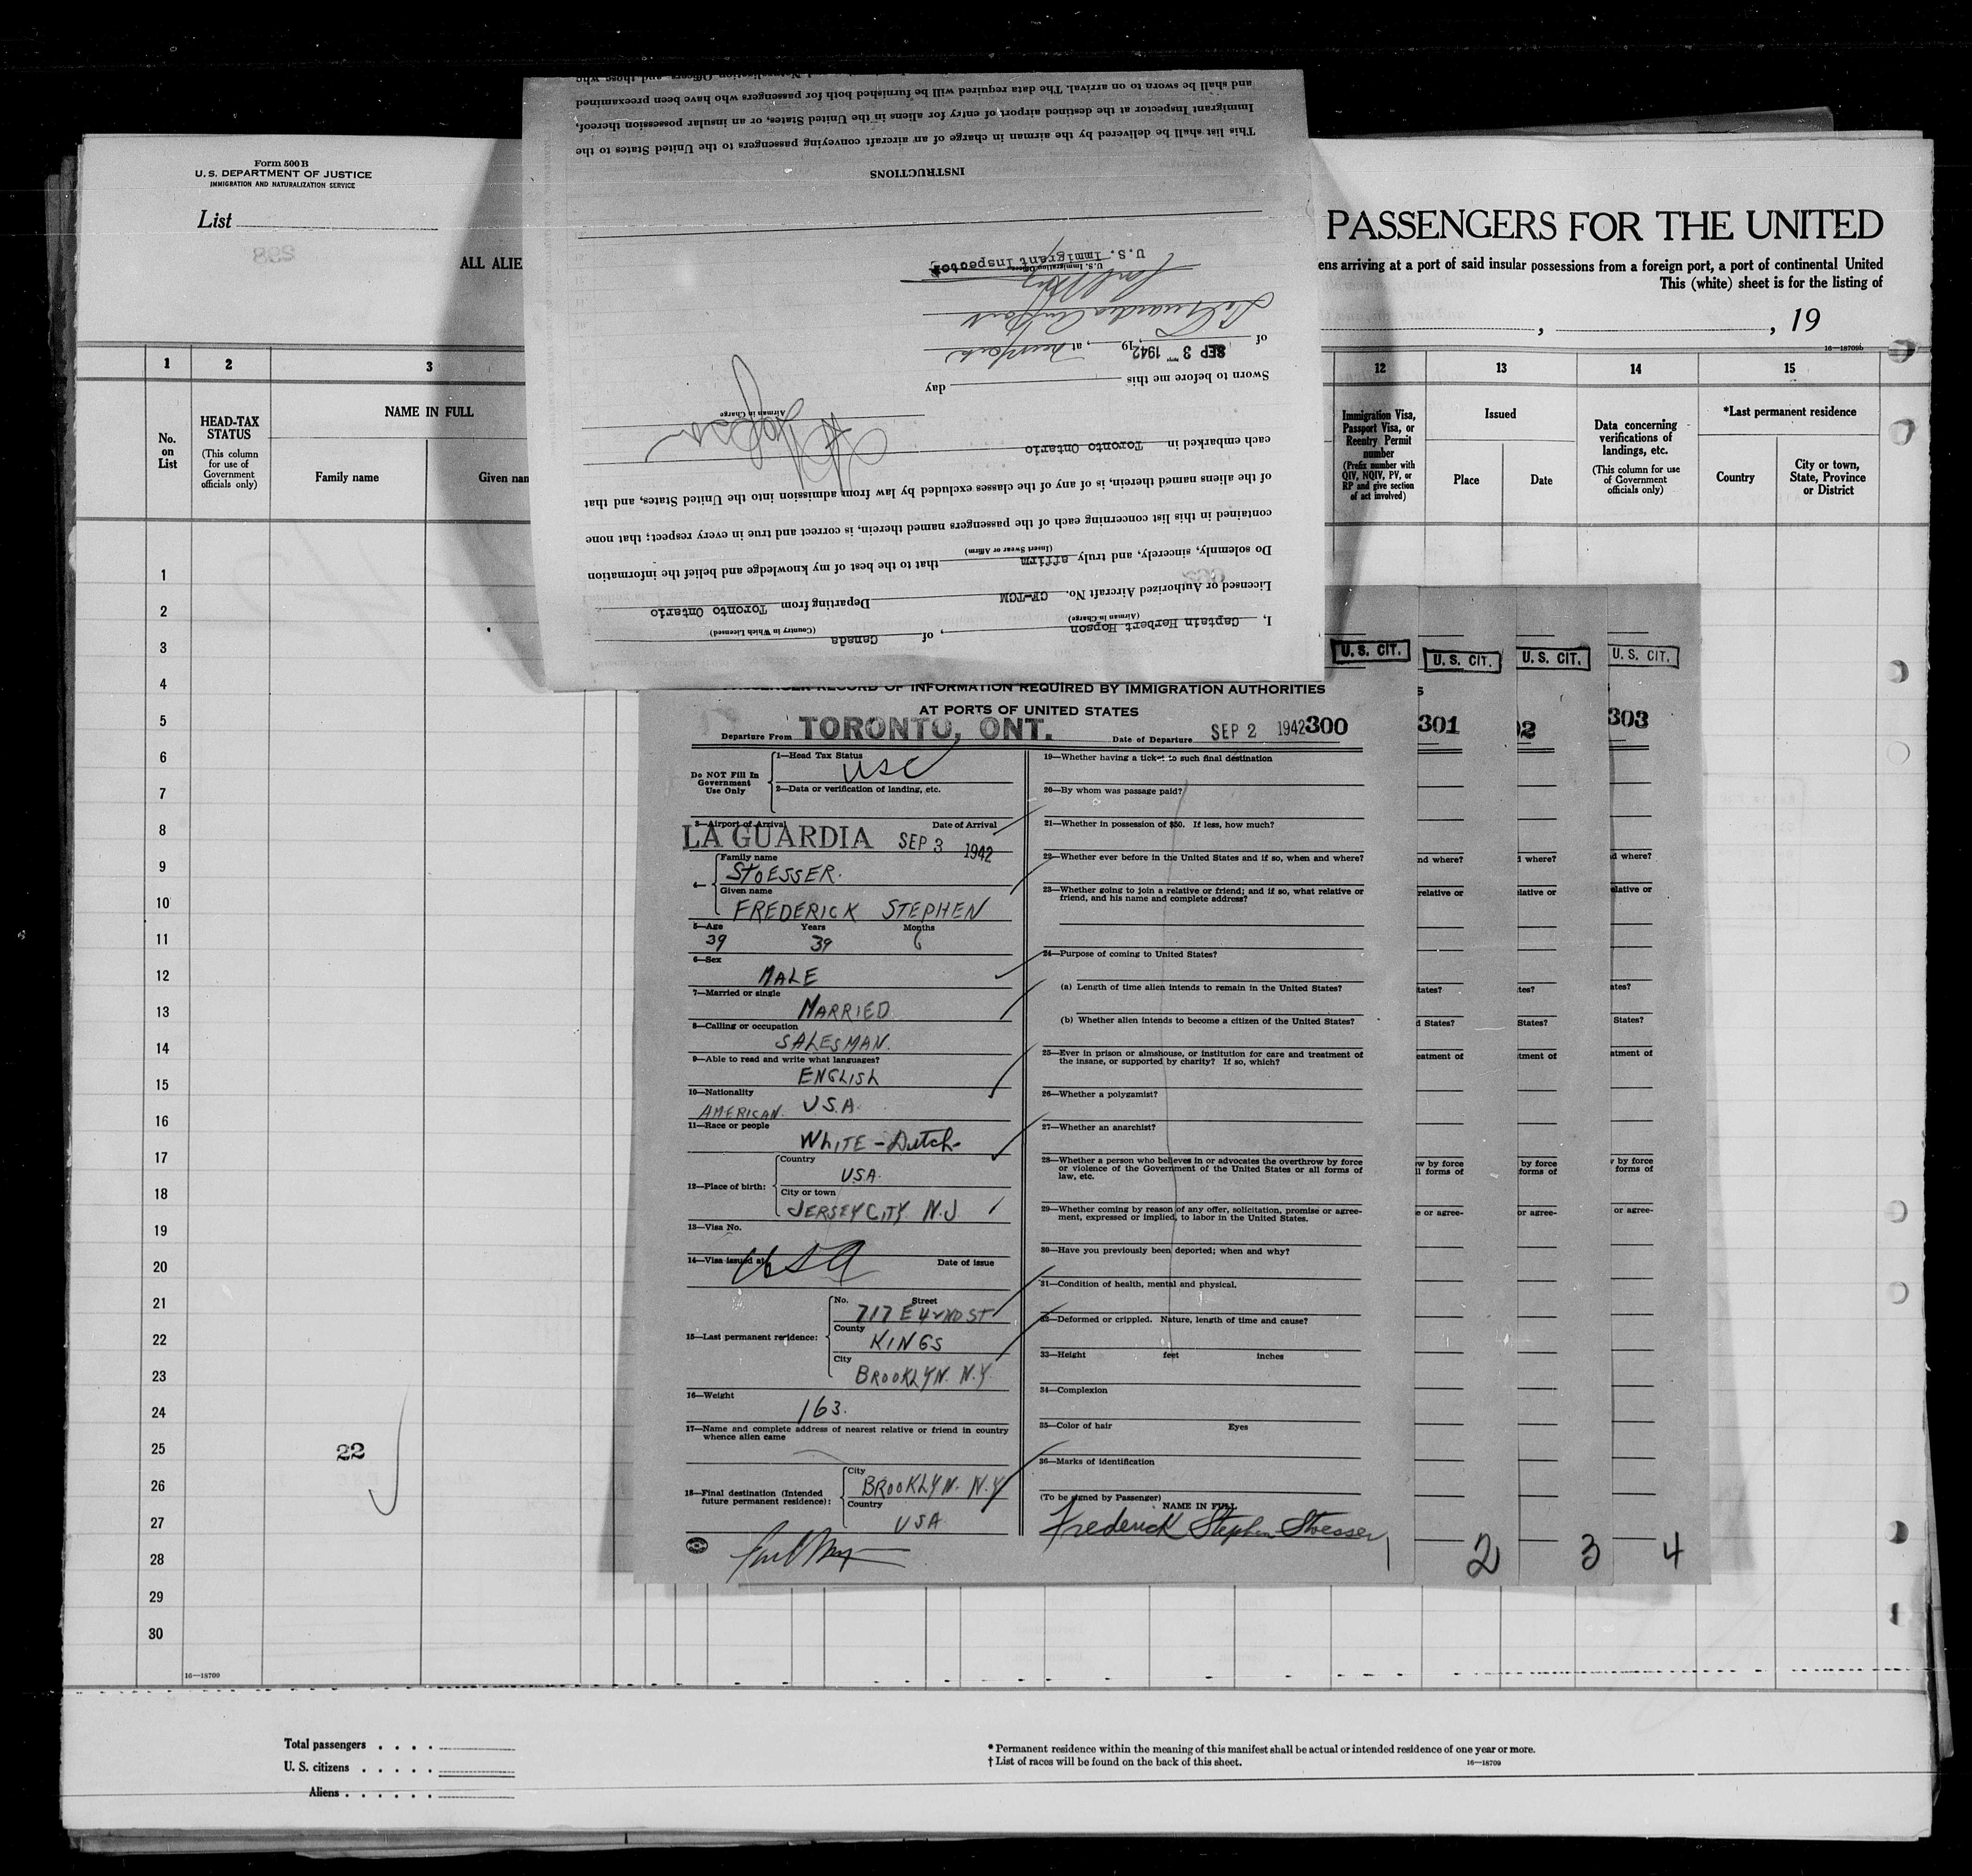 Form 500 B
U. S. DEPARTMENT OF JUSTICE
IMMIGRATION AND NATURALIZATION SERVICE
List
298
ALL ALIE
PASSENGERS FOR THE UNITED
ens arriving at a port of said insular possessions from a foreign port, a port of continental United
This (white) sheet is for the listing of
, , 19
16—18709b
1 2 3 12 13 14 15
No. on List
HEAD-TAX STATUS
(This column for use of Government officials only)
NAME IN FULL
Family name
Given nam
Immigration Visa, Passport Visa, or Reentry Permit number
(Prefix number with QIV, NQIV, PV, or RP and give section of act involved)
Issued
Place
Date
Data concerning verifications of landings, etc.
(This column for use of Government officials only)
*Last permanent residence
Country
City or town, State, Province or District
1
2
3
4
5
6
7
8
9
10
11
12
13
14
15
16
17
18
19
20
21
22
23
24
25
26
27
28
29
30
22
16—18709
Total passengers . . . .
U. S. citizens . . . . .
Aliens . . . . . .
* Permanent residence within the meaning of this manifest shall be actual or intended residence of one year or more.
† List of races will be found on the back of this sheet.
16—18709
I, Captain Herbert Hopson, of Canada
(Airman in Charge) (Country in Which Licensed)
Licensed or Authorized Aircraft No. CF-TCM Departing from Toronto Ontario
Do solemnly, sincerely, and truly affirm that to the best of my knowledge and belief the information
(Insert Swear or Affirm)
contained in this list concerning each of the passengers named therein, is correct and true in every respect; that none
of the aliens named therein, is of any of the classes excluded by law from admission into the United States, and that
each embarked in Toronto Ontario
Airman in Charge
Sworn to before me this day
of SEP 3 1942, 19 , at New York
La Guardia Airport
U.S. Immigration Officer
U. S. Immigrant Inspector
INSTRUCTIONS
This list shall be delivered by the airman in charge of an aircraft conveying passengers to the United States to the
Immigrant Inspector at the destined airport of entry for aliens in the United States, or an insular possession thereof,
and shall be sworn to on arrival. The data required will be furnished both for passengers who have been preexamined
PASSENGER RECORD OF INFORMATION REQUIRED BY IMMIGRATION AUTHORITIES
AT PORTS OF UNITED STATES
Departure From TORONTO, ONT. Date of Departure SEP 2 1942 300
Do NOT Fill In Government Use Only
1—Head Tax Status
USC
2—Data or verification of landing, etc.
3—Airport of Arrival Date of Arrival
LA GUARDIA SEP 3 1942
4—
Family name
STOESSER.
Given name
FREDERICK STEPHEN
5—Age Years Months
39 39 6
6—Sex
MALE
7—Married or single
MARRIED
8—Calling or occupation
SALESMAN.
9—Able to read and write what languages?
ENGLISH
10—Nationality
AMERICAN. U.S.A.
11—Race or people
WHITE - Dutch-
12—Place of birth:
Country
USA.
City or town
JERSEY CITY N.J.
13—Visa No.
14—Visa issued at Date of issue
USA
15—Last permanent residence:
No. Street
717 E 42ND ST
County
KINGS
City
BROOKLYN. N.Y.
16—Weight
163.
17—Name and complete address of nearest relative or friend in country
whence alien came
18—Final destination (Intended
future permanent residence):
City
BROOKLYN. N.Y
Country
USA
19—Whether having a ticket to such final destination
20—By whom was passage paid?
21—Whether in possession of $50. If less, how much?
22—Whether ever before in the United States and if so, when and where?
23—Whether going to join a relative or friend; and if so, what relative or
friend, and his name and complete address?
24—Purpose of coming to United States?
(a) Length of time alien intends to remain in the United States?
(b) Whether alien intends to become a citizen of the United States?
25—Ever in prison or almshouse, or institution for care and treatment of
the insane, or supported by charity? If so, which?
26—Whether a polygamist?
27—Whether an anarchist?
28—Whether a person who believes in or advocates the overthrow by force
or violence of the Government of the United States or all forms of
law, etc.
29—Whether coming by reason of any offer, solicitation, promise or agree-
ment, expressed or implied, to labor in the United States.
30—Have you previously been deported; when and why?
31—Condition of health, mental and physical.
32—Deformed or crippled. Nature, length of time and cause?
33—Height feet inches
34—Complexion
35—Color of hair Eyes
36—Marks of identification
(To be signed by Passenger)
NAME IN FULL
Frederick Stephen Stoesser
1 2 3 4
U. S. CIT. U. S. CIT. U. S. CIT. U. S. CIT.
301 02 303
nd where? d where? d where?
relative or elative or elative or
tates? tes? ates?
d States? States? States?
eatment of tment of atment of
w by force by force y by force
ll forms of forms of forms of
e or agree- or agree- or agree-